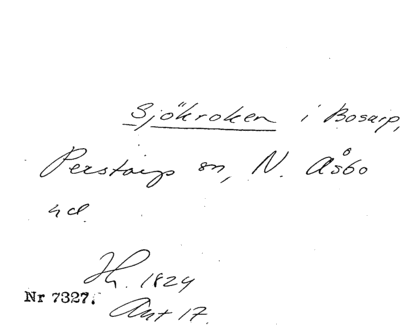 Sjökroken i Bosarp,
Perstorps sn, N. Åsbo
hd.
Jh. 1824
Nr 7327.
Akt 17.